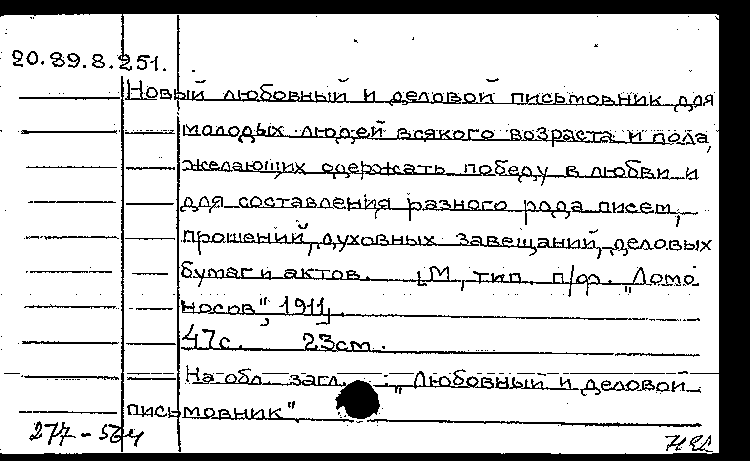 20.89.8.251.
Новый любовный и деловой письмовник для
молодых людей всякого возраста и пола,
желающих одержать победу в любви и
для составления разного рода писем,
прошений, духовных завещаний, деловых
бумаг и актов. [М, тип. п/ф. „Ломо
носов", 1911].
47с. 23см.
На обл. загл. : „Любовный и деловой
письмовник".
277-564